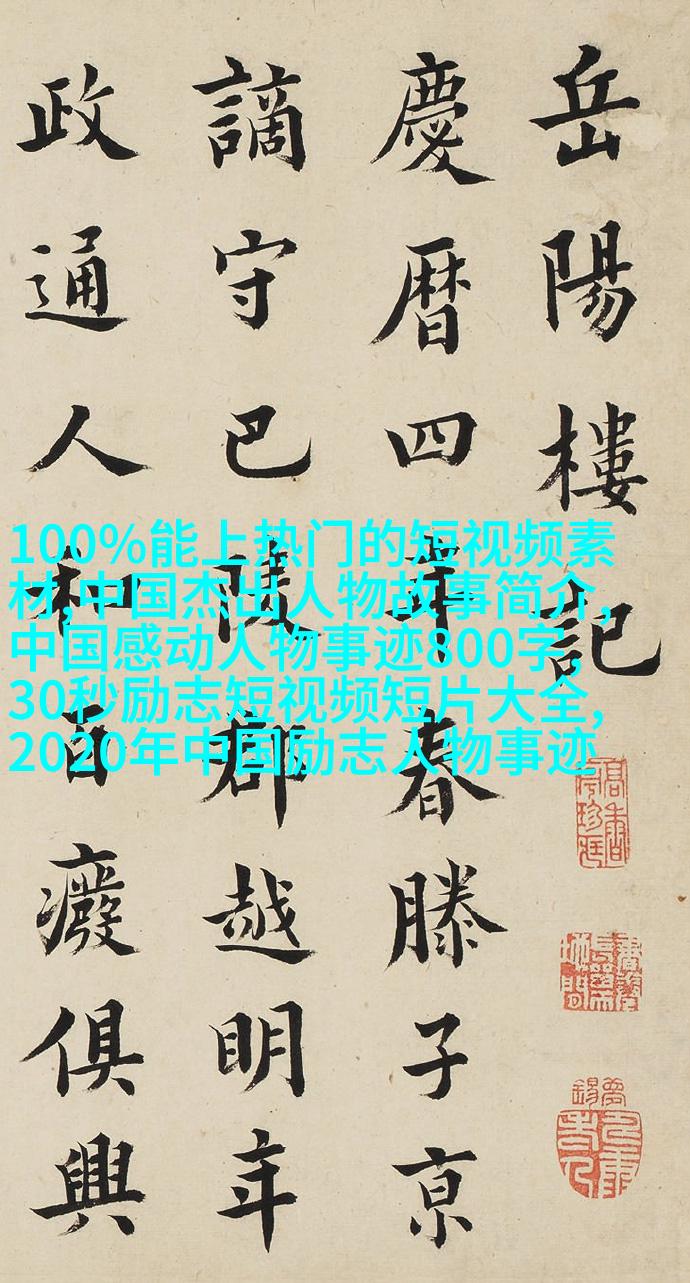 岳陽樓記
慶暦四年春滕子亰
謫守巴陵郡越明年
政通人和百癈俱興
100%能上热门的短视频素
材,中国杰出人物故事简介,
中国感动人物事迹800字,
30秒励志短视频短片大全,
2020年中国励志人物事迹